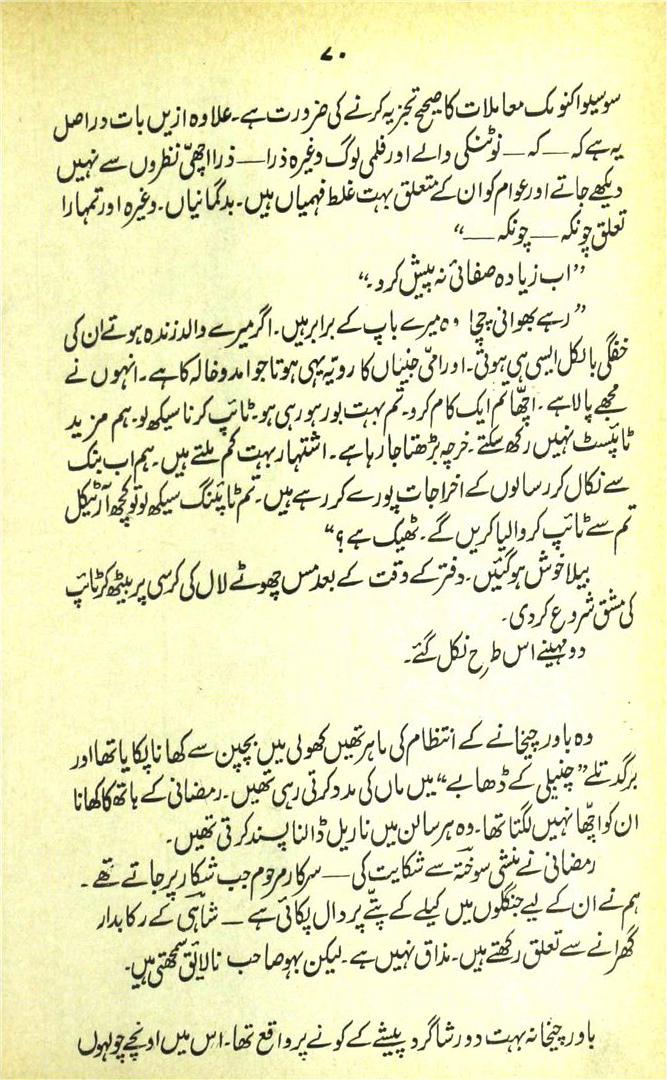 ۷۰
سوسیو اکنومک معاملات کا صحیح تجزیہ کرنے کی ضرورت ہے۔ علاوہ ازیں بات دراصل
یہ ہے کہ — کہ — نوٹنکی والے اور فلمی لوگ وغیرہ ذرا — ذرا اچھی نظروں سے نہیں
دیکھے جاتے اور عوام کو ان کے متعلق بہت غلط فہمیاں ہیں۔ بدگمانیاں۔ وغیرہ اور تمہارا
تعلق چونکہ — چونکہ —“
”اب زیادہ صفائی نہ پیش کرو۔“
”رہے بھوانی چچا وہ میرے باپ کے برابر ہیں۔ اگر میرے والد زندہ ہوتے ان کی
خفگی بالکل ایسی ہی ہوتی۔ اور امّی جنیاں کا رویہ یہی ہوتا جو امدو خالہ کا ہے۔ انہوں نے
مجھے پالا ہے۔ اچھا تم ایک کام کرو۔ تم بہت بور ہو رہی ہو۔ ٹائپ کرنا سیکھ لو۔ ہم مزید
ٹائپسٹ نہیں رکھ سکتے۔ خرچہ بڑھتا جا رہا ہے۔ اشتہار بہت کم ملتے ہیں۔ ہم اب بنک
سے نکال کر رسالوں کے اخراجات پورے کر رہے ہیں۔ تم ٹائپنگ سیکھ لو تو کچھ آرٹیکل
تم سے ٹائپ کروا لیا کریں گے۔ ٹھیک ہے؟“
بیلا خوش ہو گئیں۔ دفتر کے وقت کے بعد مس چھوٹے لال کی کرسی پر بیٹھ کر ٹائپ
کی مشق شروع کر دی۔
دو مہینے اس طرح نکل گئے۔
وہ باورچیخانے کے انتظام کی ماہر تھیں کھولی میں بچپن سے کھانا پکایا تھا اور
برگد تلے ”چنبیلی کے ڈھابے“ میں ماں کی مدد کرتی رہی تھیں۔ رمضانی کے ہاتھ کا کھانا
ان کو اچھا نہیں لگتا تھا۔ وہ ہر سالن میں ناریل ڈالنا پسند کرتی تھیں۔
رمضانی نے منشی سوختہ سے شکایت کی — سرکار مرحوم جب شکار پر جاتے تھے۔
ہم نے ان کے لیے جنگلوں میں کیلے کے پتّے پر دال پکائی ہے — شاہی کے رکابدار
گھرانے سے تعلق رکھتے ہیں۔ مذاق نہیں ہے۔ لیکن بہو صاحب نالائق سمجھتی ہیں۔
باورچیخانہ بہت دور شاگرد پیشے کے کونے پر واقع تھا۔ اس میں اونچے چولہوں